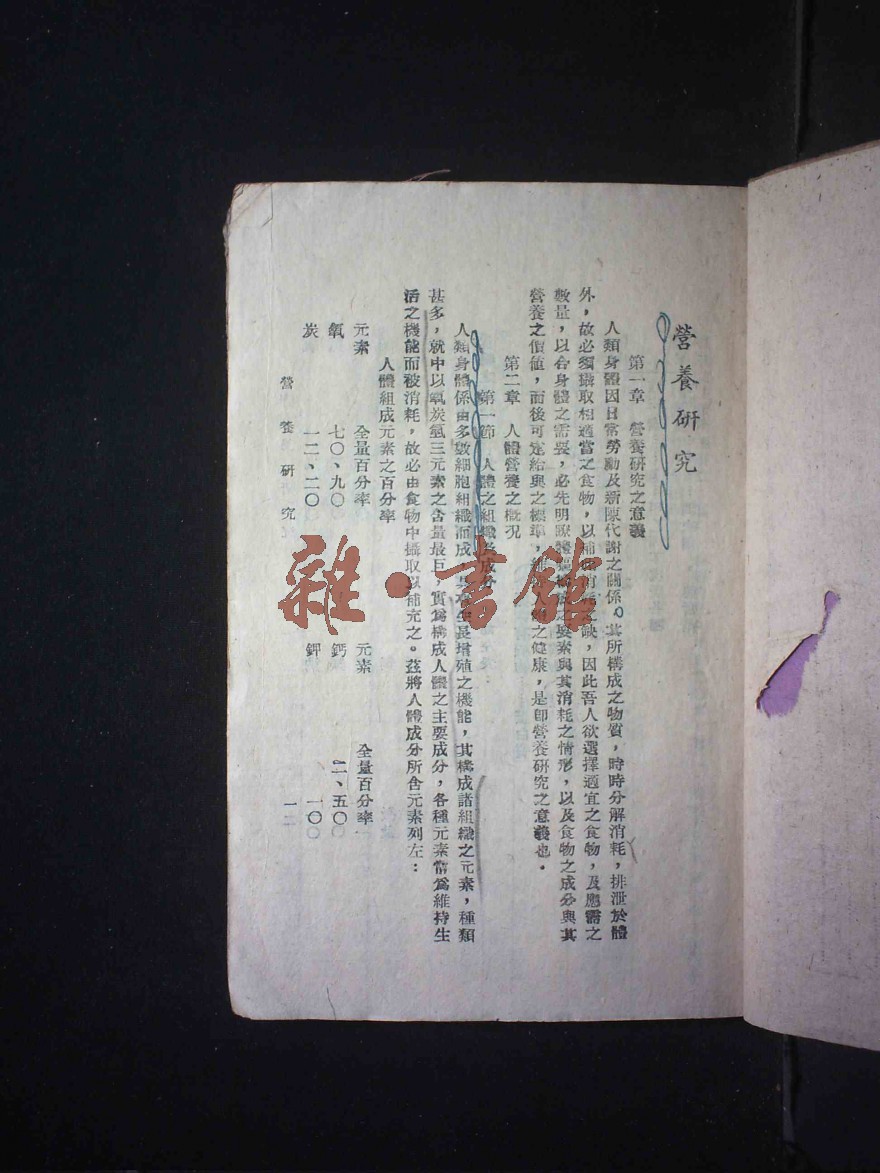 營養研究
第一章 營養研究之意義
人類身體因日常勞動及新陳代謝之關係。其所構成之物質，時時分解消耗，排泄於體
外，故必須攝取相適當之食物，以補，因此吾人欲選擇適宜之食物，及應需之
數量，以合身體之需要，必先明瞭體之要素與其消耗之情形，以及食物之成分與其
營養之價値，而後可定給與之標準，之健康，是卽營養研究之意義也。
第二章 人體營養之槪況
第一節 人體之組織及成分
人類身體係由多數細胞組織而成，有生長增殖之機能，其構成諸組織之元素，種類
甚多，就中以氧炭氫三元素之含量最巨，實爲構成人體之主要成分，各種元素爲維持生
活之機能而被消耗，故必由食物中攝取以補充之。茲將人體成分所含元素列左：
人體組成元素之百分率
元素 全量百分率 元素 全量百分率
氧 七〇、九〇 鈣 二、五〇〇
炭 一二、二〇 鉀 一〇〇
營養研究 一
雜·書館